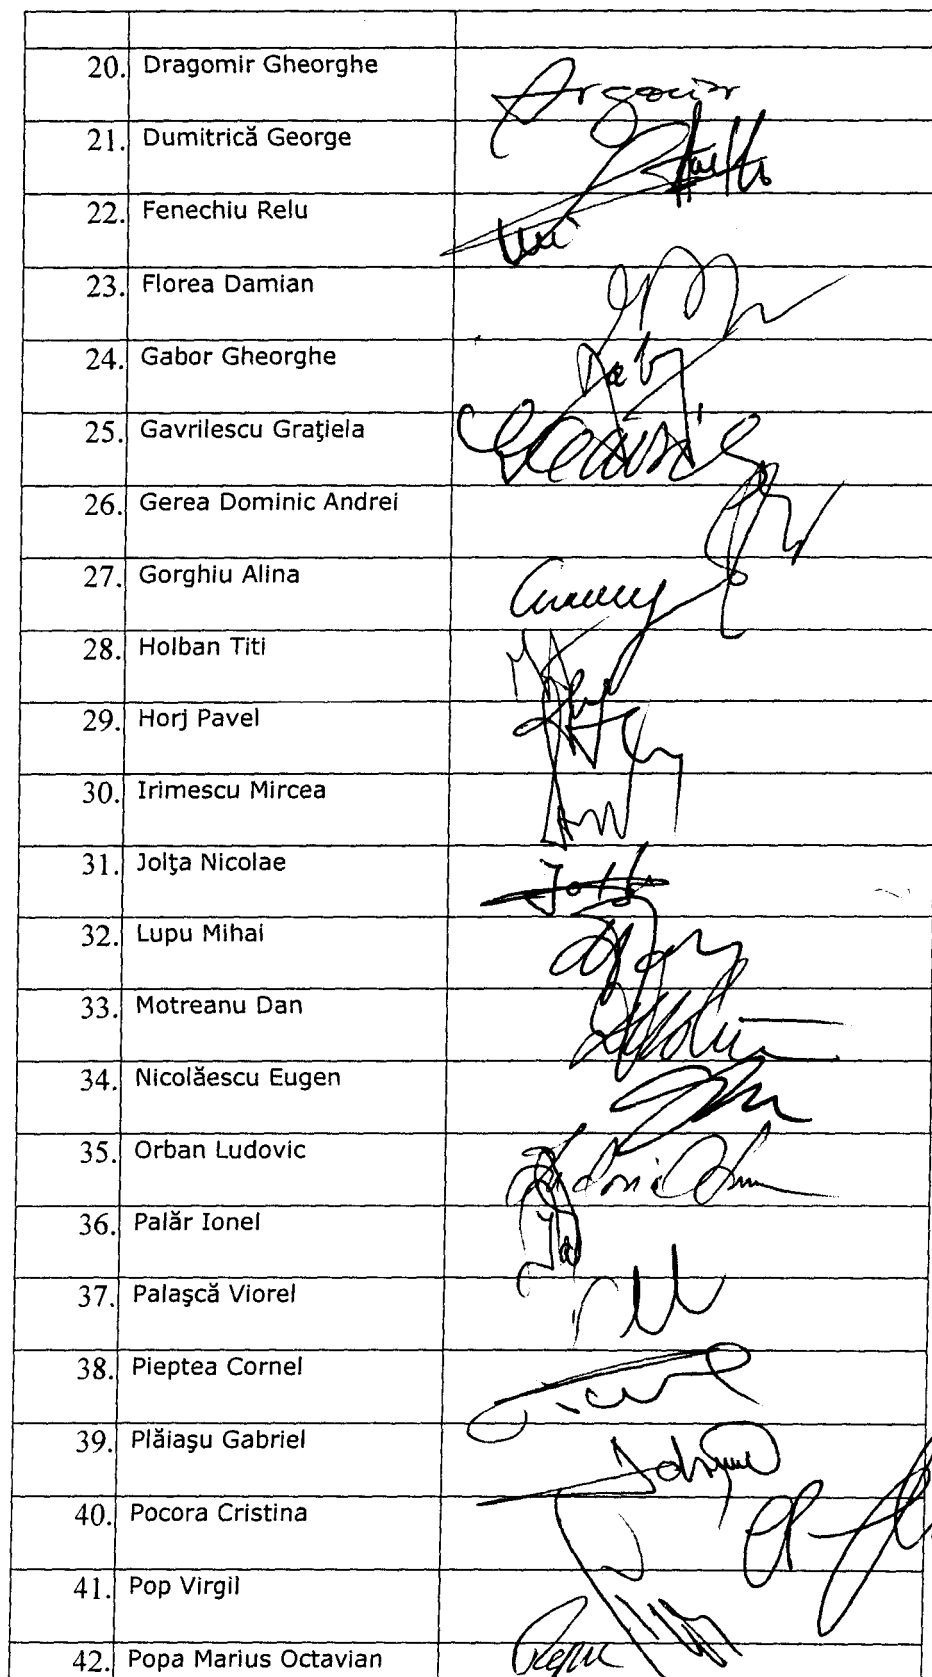 20. Dragomir Gheorghe
21. Dumitrică George
22. Fenechiu Relu
23. Florea Damian
24. Gabor Gheorghe
25. Gavrilescu Graţiela
26. Gerea Dominic Andrei
27. Gorghiu Alina
28. Holban Titi
29. Horj Pavel
30. Irimescu Mircea
31. Jolţa Nicolae
32. Lupu Mihai
33. Motreanu Dan
34. Nicolăescu Eugen
35. Orban Ludovic
36. Palăr Ionel
37. Palaşcă Viorel
38. Pieptea Cornel
39. Plăiaşu Gabriel
40. Pocora Cristina
41. Pop Virgil
42. Popa Marius Octavian